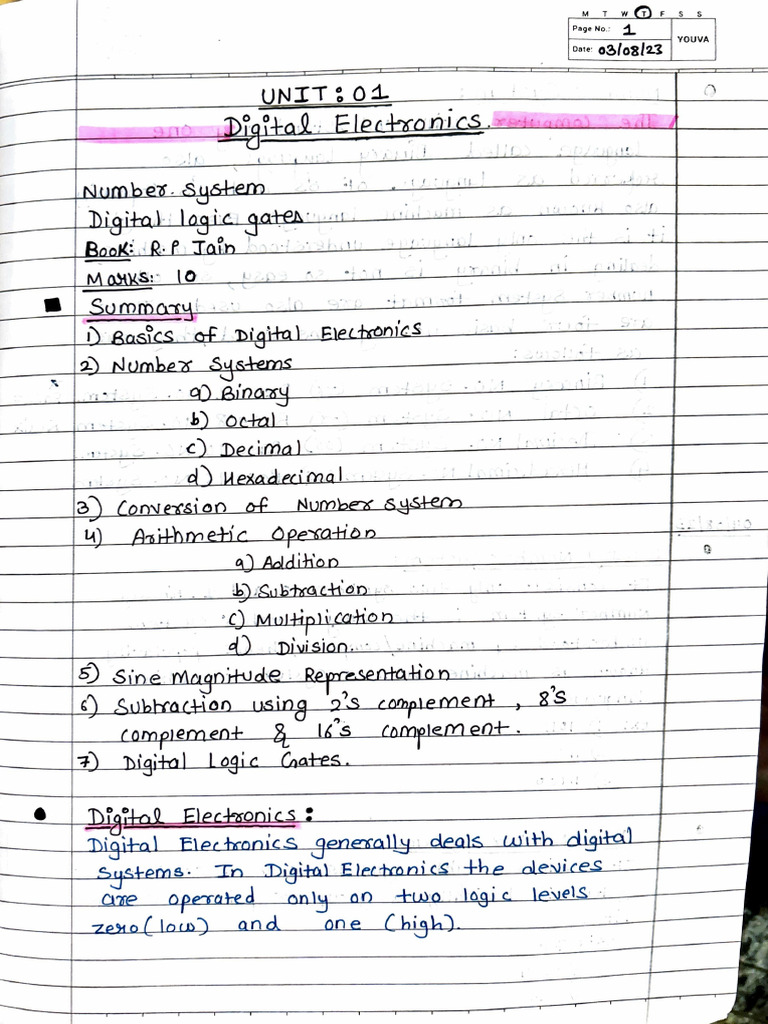 M T W T F S S
Page No.: 1
Date: 03/08/23
YOUVA
UNIT: 01
Digital Electronics.
Number System
Digital logic gates
Book: R.P Jain
Marks: 10
Summary
1) Basics of Digital Electronics
2) Number Systems
a) Binary
b) Octal
c) Decimal.
d) Hexadecimal
3) Conversion of Number System
4) Arithmetic Operation
a) Addition
b) Subtraction
c) Multiplication
d) Division.
5) Sine Magnitude Representation
6) Subtraction using 2's complement, 8's
complement & 16's complement.
7) Digital Logic Gates.
Digital Electronics:
Digital Electronics generally deals with digital
Systems. In Digital Electronics the devices
are operated only on two logic levels
zero (low) and one (high).